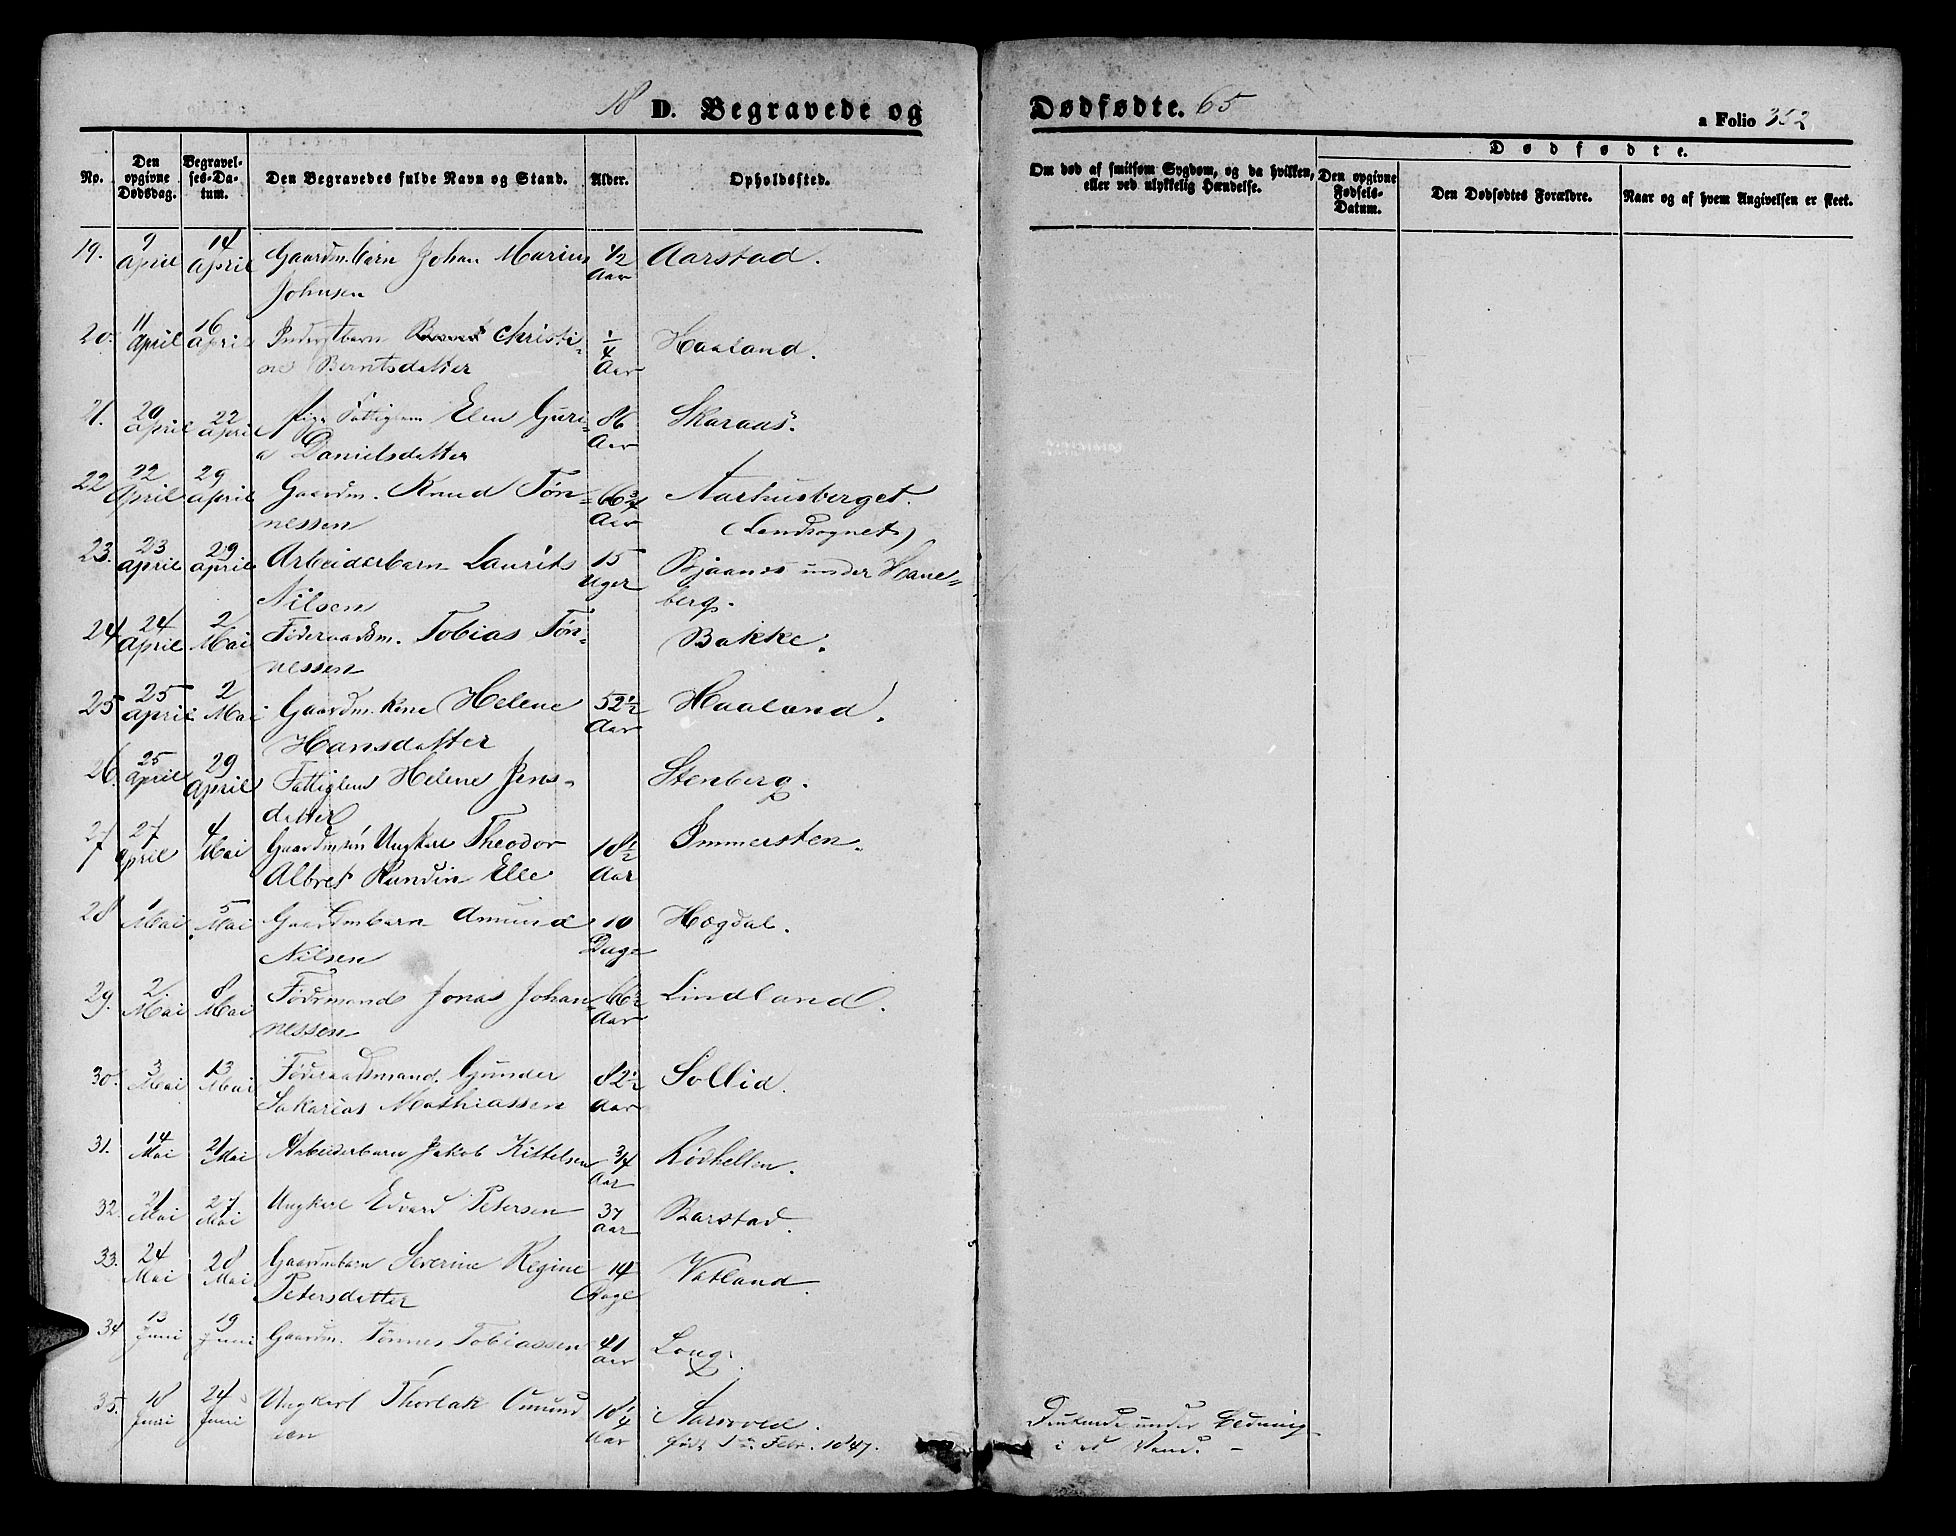 18 D. Begravede og
Dødfødte. 65
a Folio 352
No.
Den opgivne Dødsdag.
Begravelses-Datum.
Den Begravedes fulde Navn og Stand.
Alder.
Opholdssted.
Om død af smitsom Sygdom, og da hvilken, eller ved ulykkelig Hændelse.
Dødfødte.
Den opgivne Fødsels-Datum.
Den Dødfødtes Forældre.
Naar og af hvem Angivelsen er skeet.
19. 9 April 14 April Gaardm.barn Johan Marius 1/2 Aar Aarstad.
Johnsen
20. 11 April 16 April Inderstbarn Christi- 1/4 Aar Haaland.
ne Berntsdatter
21. 20 April 22 April Pige Fattiglem Elen Guri- 86 Aar Skaraas.
a Danielsdatter
22 22 April 29 April Gaardm. Knud Tøn- 66 3/4 Aar Aarhusberget.
nessen (Landsognet)
23. 23 April 29 April Arbeiderbarn Laurits 15 Uger Bjaanes under Hane-
Nilsen berg.
24 24 April 2 Mai Føderaadsm. Tobias Tøn- Bakke.
nessen
25 25 April 2 Mai Gaardm. Kone Helene 52 1/2 Aar Haaland.
Hansdatter
26. 25 April 29 April Fattiglem Helene Jens- Stenberg.
datter
27 27 April 4 Mai Gaardmsøn Ungkarl Theodor 18 1/2 Aar Immersten.
Albret Rundin Elle
28 1 Mai 5 Mai Gaardmbarn Amund 10 Dage Høgdal.
Nilsen
29. 2 Mai 8 Mai Fødrmand Jonas Johan- 66 1/2 Aar Lindland.
nessen
30. 3 Mai 13 Mai Føderaadsmand Gunder 82 1/2 Aar Sollid.
Sakarias Mathiassen
31. 14 Mai 21 Mai Arbeiderbarn Jakob Kittelsen 3/4 Aar Rødhellen.
32. 21 Mai 27 Mai Ungkarl Edvard Petersen 37 Aar Barstad.
33. 24 Mai 28 Mai Gaardmbarn Severine Regine 14 Dage Vatland.
Petersdatter
34 13 Juni 19 Juni Gaardm. Tønnes Tobiassen 41 Aar Long.
35. 18 Juni 24 Juni Ungkarl Thorlak Omund 18 1/4 Aar
sen født 1ste Febr. 1847.
Druknede under
i et Vand. -